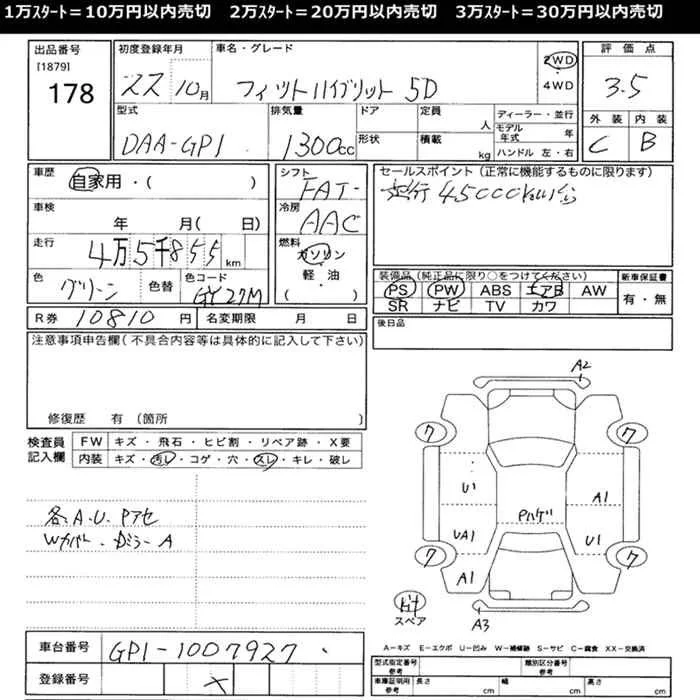 1万ｽﾀｰﾄ＝10万円以内売切　2万ｽﾀｰﾄ＝20万円以内売切　3万ｽﾀｰﾄ＝30万円以内売切
出品番号 初度登録年月 車名・グレード 評価点
[1879]
178 22 10月 フィットハイブリット 5D 2WD 4WD 3.5
型式 排気量 ドア 定員 人 ディーラー・並行 外装 内装
DAA-GP1 1300cc 形状 積載 kg モデル年式 年 C B
ハンドル 左・右
車歴 シフト セールスポイント (正常に機能するものに限ります)
自家用・( ) FAT 走行45000km
車検 冷房
年 月( 日) AAC
走行 燃料
4万5千855km ガソリン
色 色替 色コード 軽・油 装備品 (純正品に限り○をつけてください) 新車保証書
グリーン GY27M ( ) PS PW ABS エアB AW 有・無
SR ナビ TV カワ
R券 10810円 名変期限 月 日 後日品
注意事項申告欄(不具合内容等は具体的に記入して下さい)
修復歴 有 (箇所 )
検査員記入欄 FW キズ・飛石・ヒビ割・リペア跡・X要
内装 キズ・汚レ・コゲ・穴・スレ・キレ・破レ
A2
ワ ワ
U' A1
Pハゲ
UA1 U1
ワ ワ
A1
スペア
A3
各.A.U.Pアセ
Wカバー・Dミラー A
車台番号 GP1-1007927
登録番号 X
A－キズ E－エクボ U－凹み W－補修跡 S－サビ C－腐食 XX－交換済
型式指定番号 参考 類別区分番号 参考
車庫証明用 参考 長さ cm 幅 cm 高さ cm